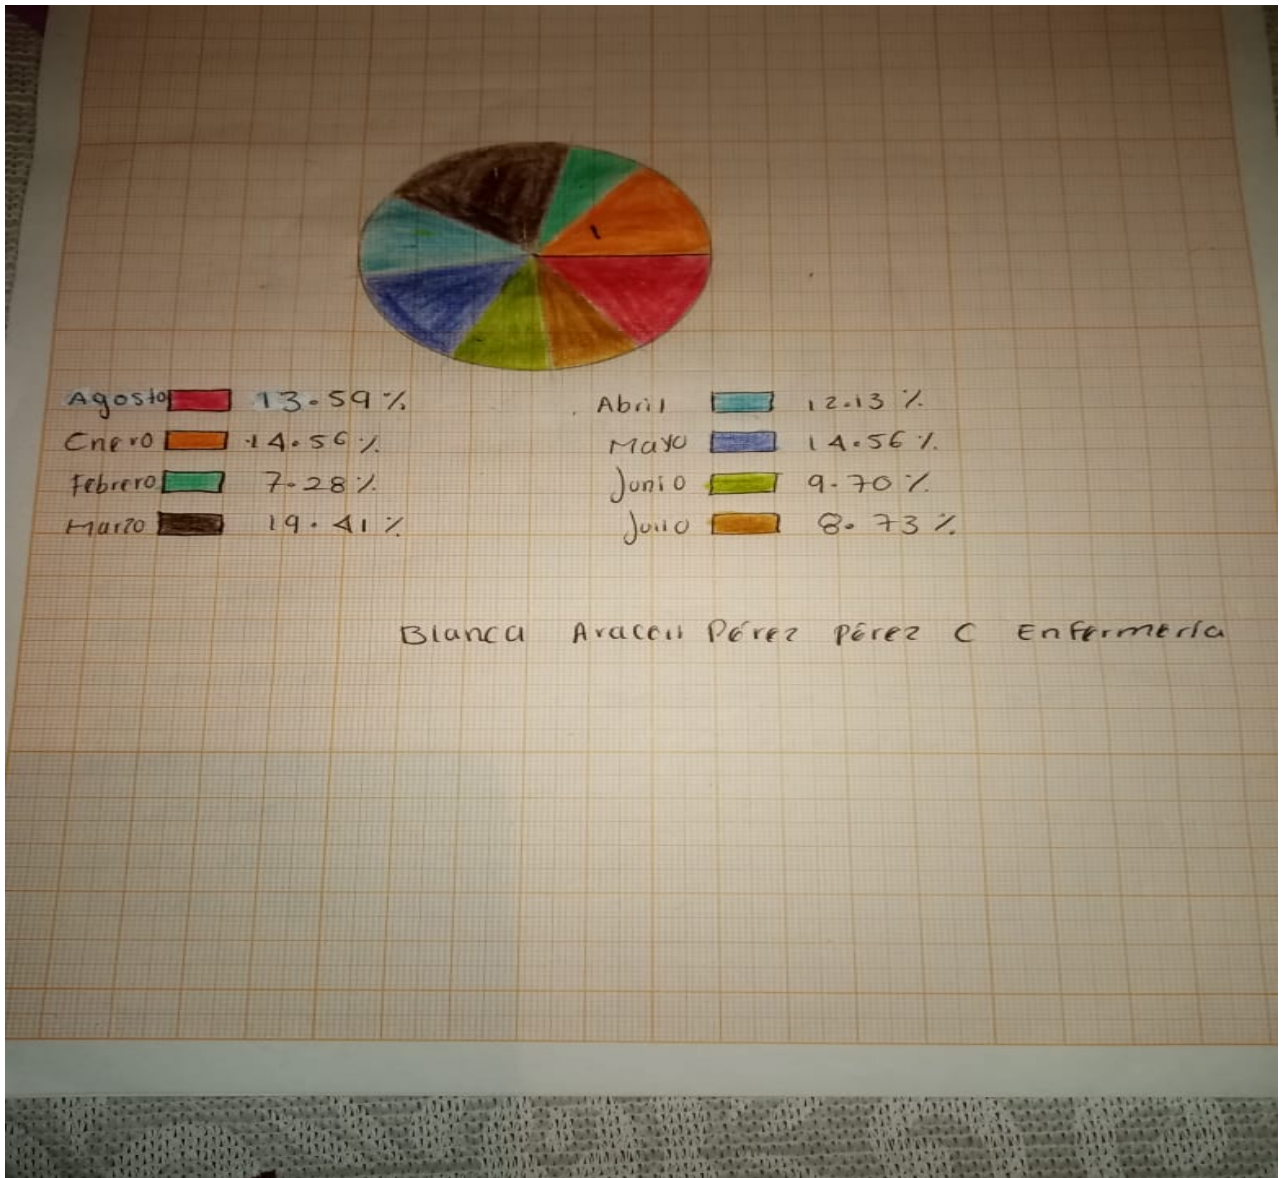 Agosto 13.59%
Enero 14.56%
Febrero 7.28%
Marzo 19.41%
Abril 12.13%
Mayo 14.56%
Junio 9.70%
Julio 8.73%
Blanca Araceli Pérez Pérez C Enfermería